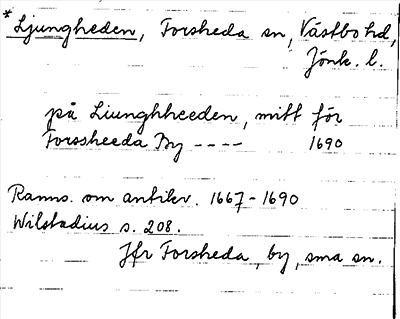 *Ljungheden, Forsheda sn, Västbo hd,
Jönk. l.
på Liunghheeden, mitt för
Forssheeda By ---- 1690
Ranns. om antikv. 1667-1690
Wilstadius s. 208.
Jfr Forsheda, by, sma sn.